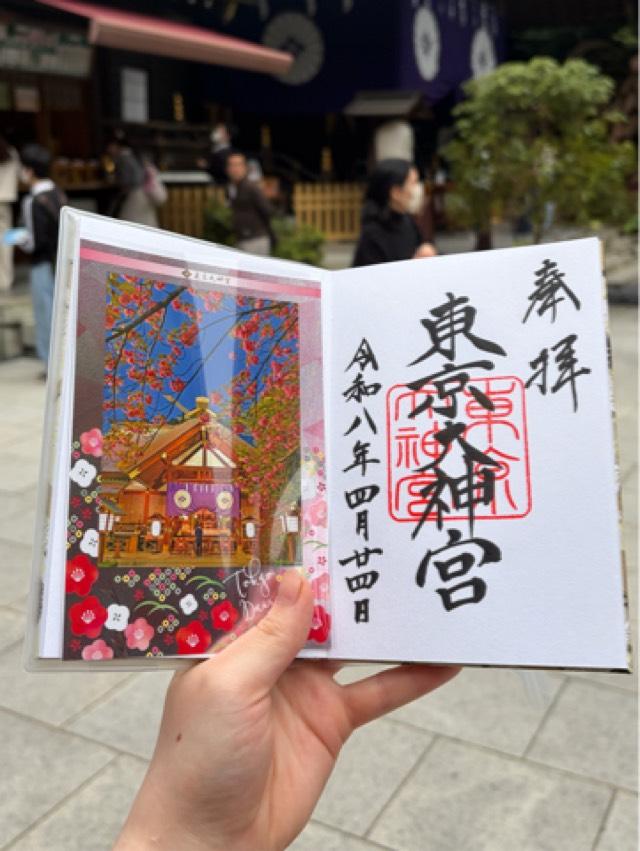 奉拝
東京大神宮
東京大神宮
令和八年四月廿四日
東京大神宮
Tokyo